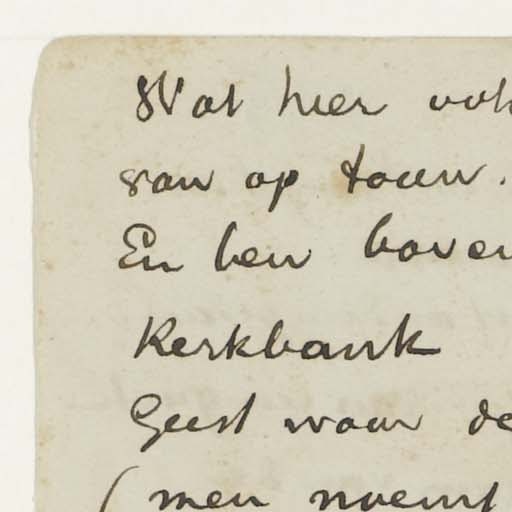 Wat hier ook
van op touw.
En ben boven
Kerkbank
Geest waar de
(men noemt